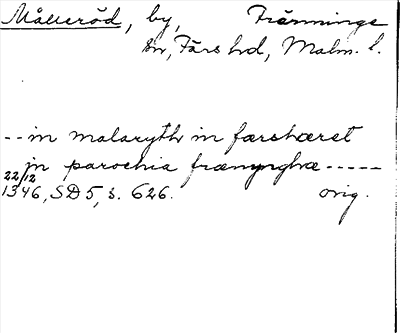 Målleröd, by, Tränninge
sn, Färs hd, Malm. l.
-- in malaryth in færshæret
in parochia frænynghæ -----
22/12
1346, SD 5, s. 626. orig.